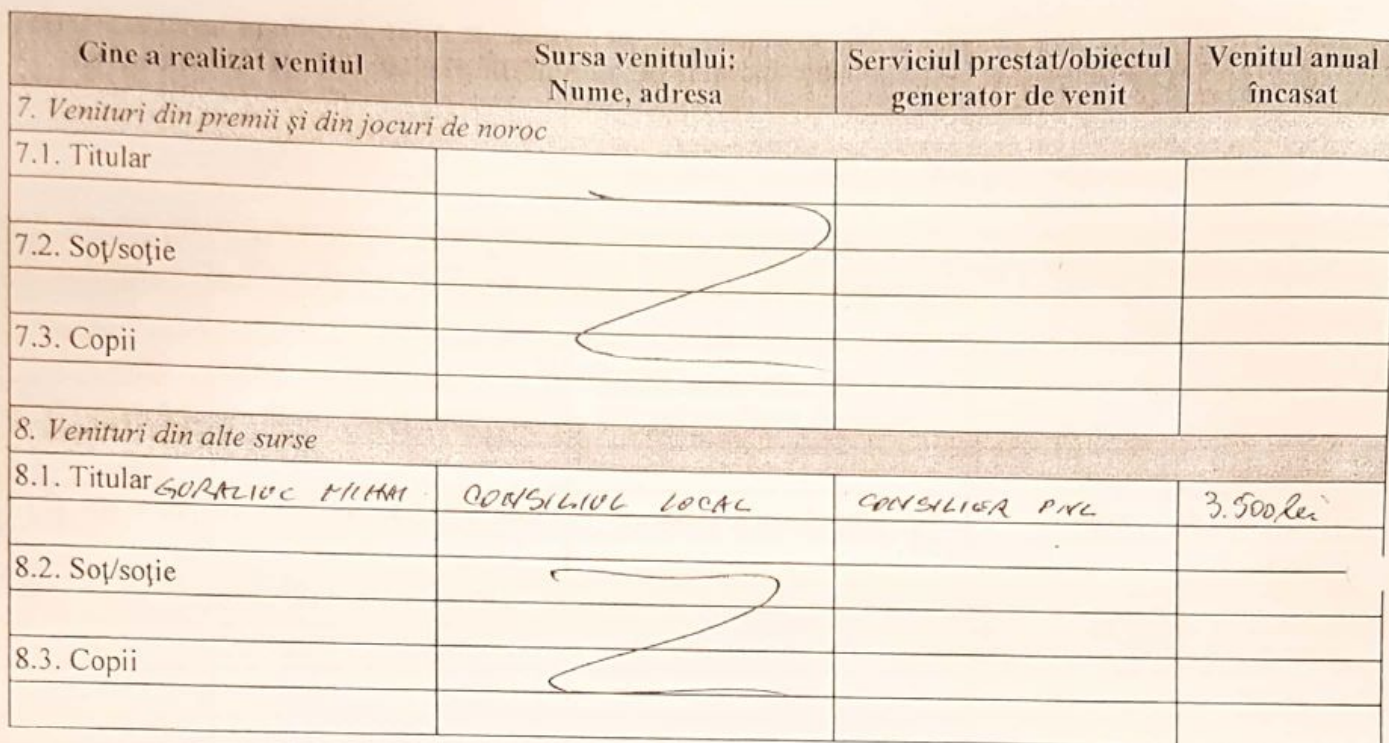 Cine a realizat venitul
Sursa venitului:
Nume, adresa
Serviciul prestat/obiectul
generator de venit
Venitul anual
încasat
7. Venituri din premii şi din jocuri de noroc
7.1. Titular
7.2. Soţ/soţie
7.3. Copii
8. Venituri din alte surse
8.1. Titular MIHAI CONSILIUL LOCAL CONSILIER PNL 3.500 lei
8.2. Soţ/soţie
8.3. Copii